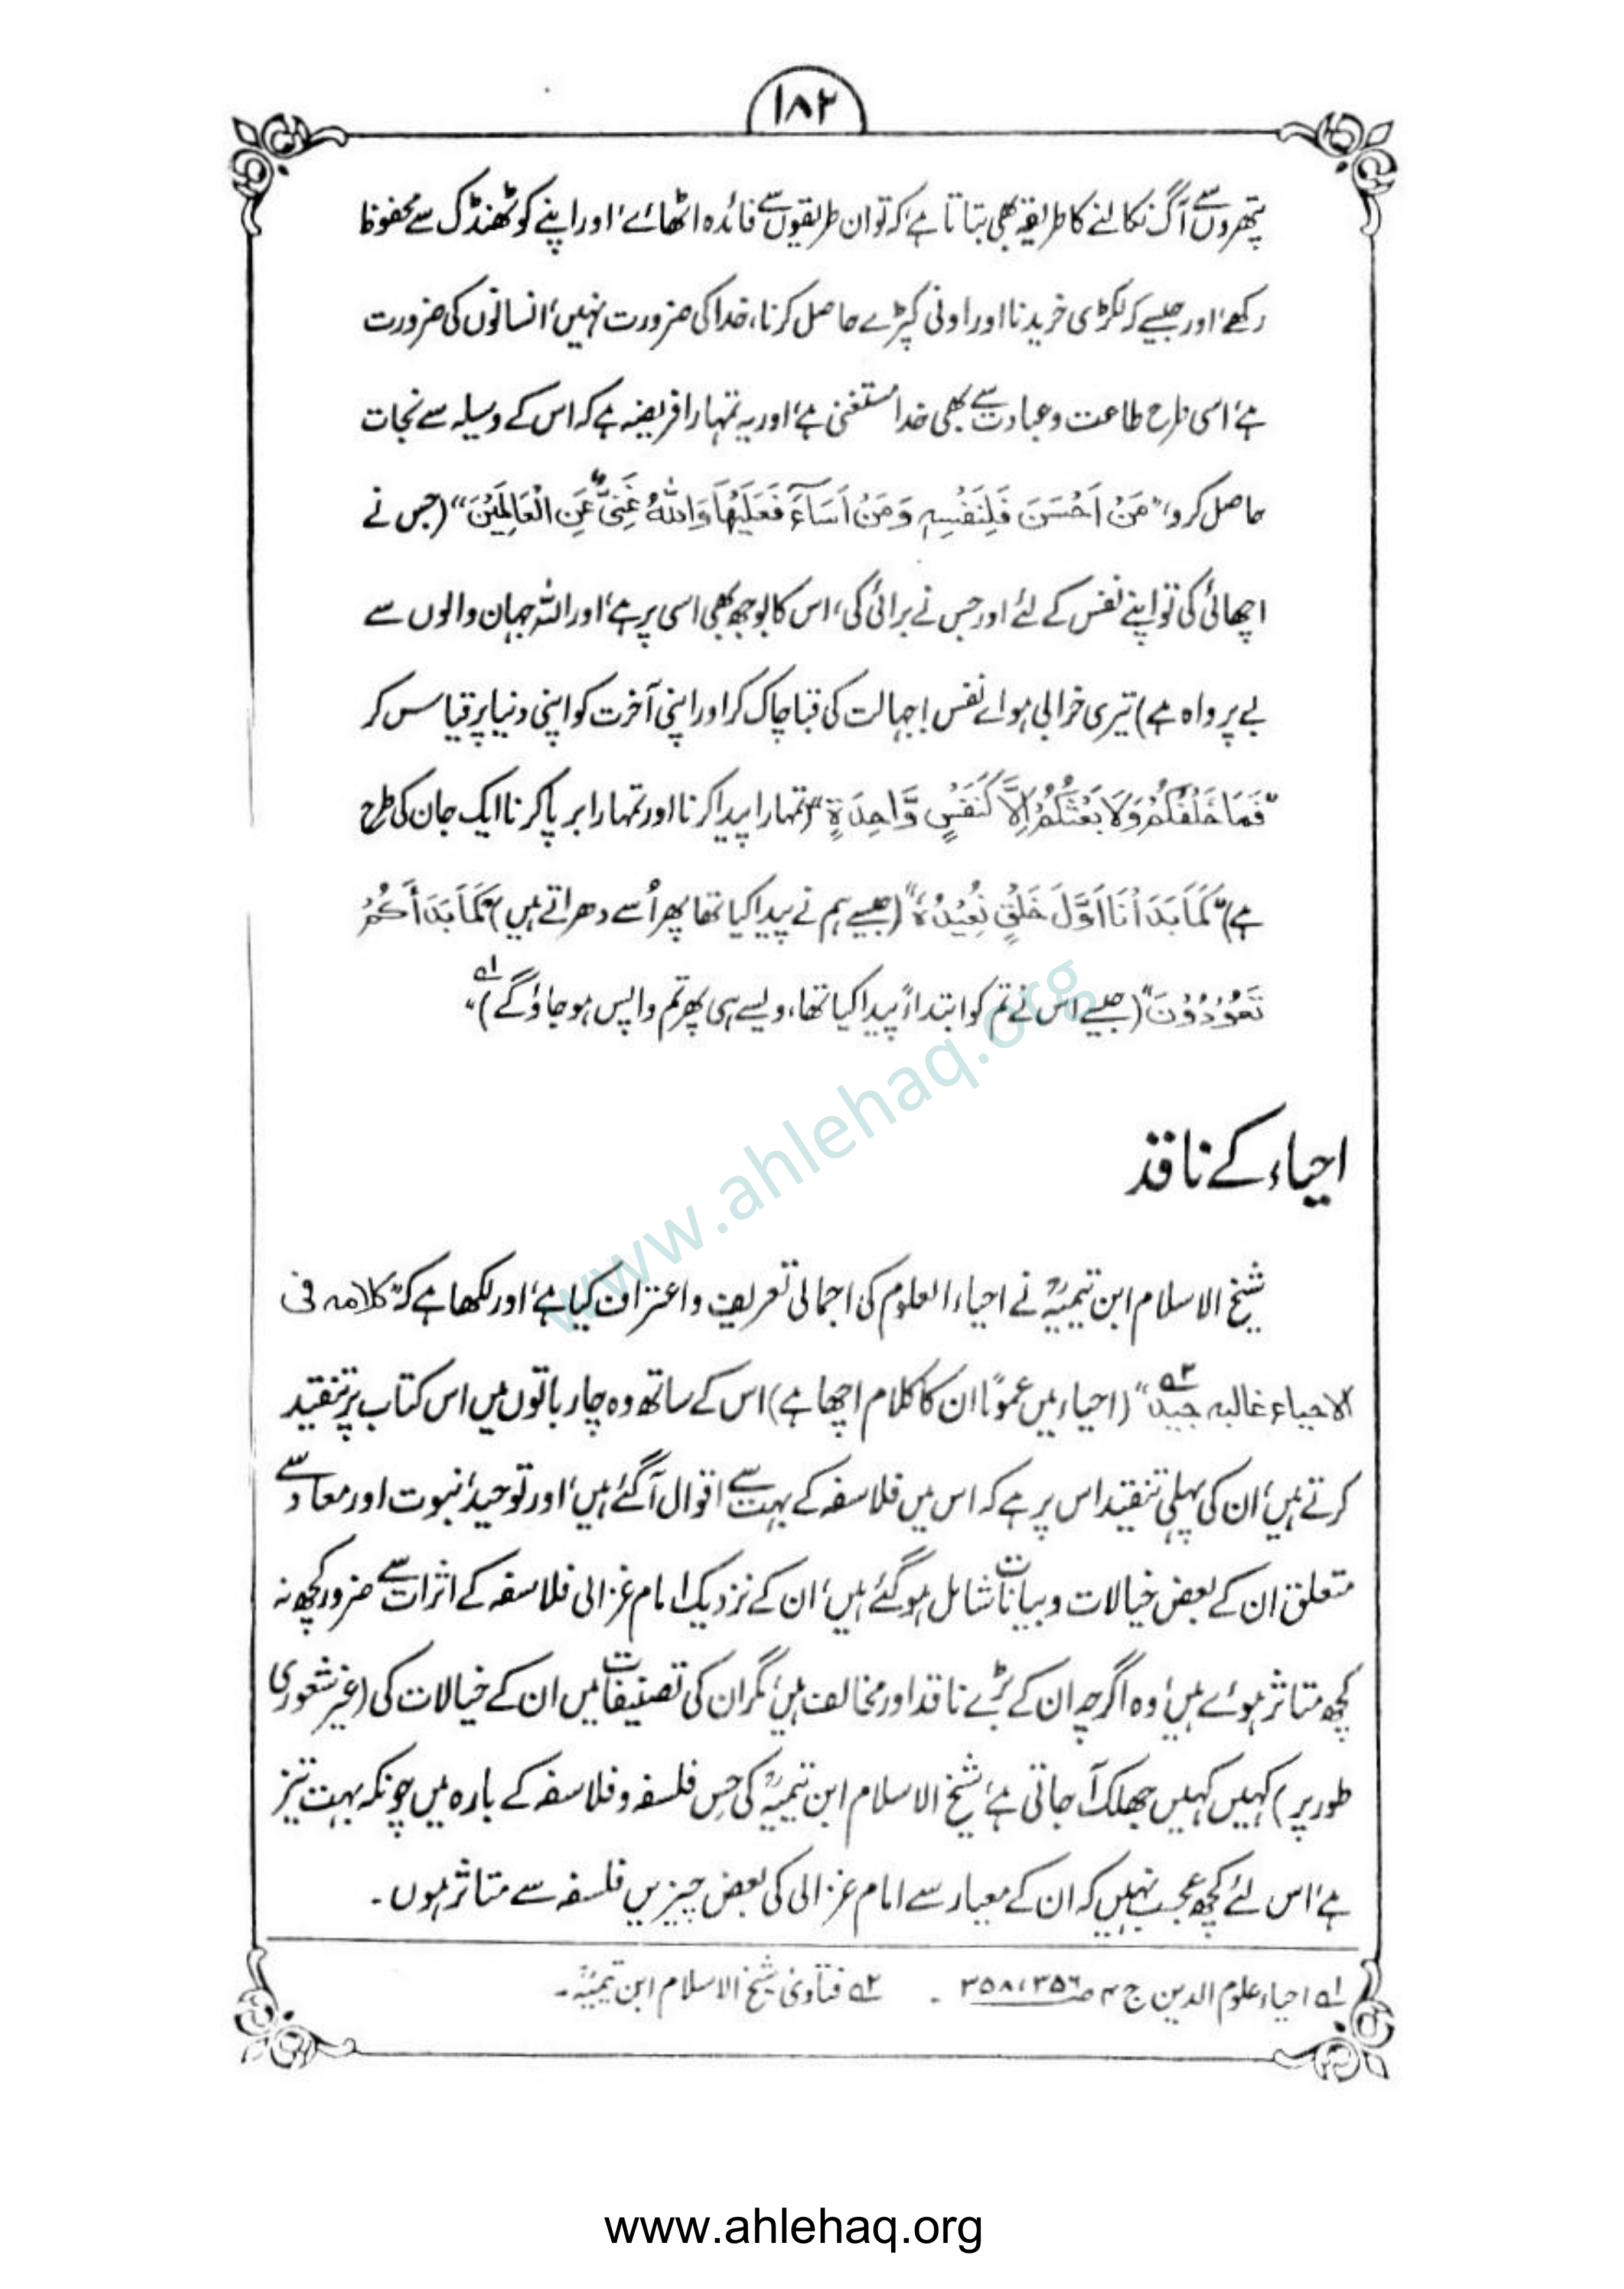 ۱۸۲
پتھروں سے آگ نکالنے کا طریقہ بھی بتاتا ہے، کہ تو ان طریقوں سے فائدہ اٹھائے، اور اپنے کو ٹھنڈک سے محفوظ
رکھے، اور جیسے کہ لکڑی خریدنا اور اونی کپڑے حاصل کرنا، خدا کی ضرورت نہیں، انسانوں کی ضرورت
ہے، اسی طرح طاعت و عبادت سے بھی خدا مستغنی ہے، اور یہ تمہارا فریضہ ہے کہ اس کے وسیلہ سے نجات
حاصل کرو، "مَنْ اَحْسَنَ فَلِنَفْسِہٖ وَمَنْ اَسَاءَ فَعَلَیْھَا وَاللّٰہُ غَنِیٌّ عَنِ الْعَالَمِیْنَ" (جس نے
اچھائی کی تو اپنے نفس کے لئے اور جس نے برائی کی، اس کا بوجھ بھی اسی پر ہے، اور اللہ جہان والوں سے
بے پرواہ ہے) تیری خرابی ہو اے نفس! جہالت کی قبا چاک کر اور اپنی آخرت کو اپنی دنیا پر قیاس کر
"فَمَا خَلْقُکُمْ وَلَا بَعْثُکُمْ اِلَّا کَنَفْسٍ وَّاحِدَۃٍ" (تمہارا پیدا کرنا اور تمہارا برپا کرنا ایک جان کی طرح
ہے) "کَمَا بَدَأْنَا اَوَّلَ خَلْقٍ نُعِیْدُہٗ" (جیسے ہم نے پیدا کیا تھا پھر اُسے دھراتے ہیں) "کَمَا بَدَأَکُمْ
تَعُوْدُوْنَ" (جیسے اس نے تم کو ابتداءً پیدا کیا تھا، ویسے ہی پھر تم واپس ہو جاؤ گے)" ۱ھ
احیاء کے ناقد
شیخ الاسلام ابن تیمیہؒ نے احیاء العلوم کی اجمالی تعریف و اعتراف کیا ہے، اور لکھا ہے کہ "کلامہ فی
الاحیاء غالبہ جید" ۲ھ (احیاء میں عموماً ان کا کلام اچھا ہے) اس کے ساتھ وہ چار باتوں میں اس کتاب پر تنقید
کرتے ہیں، ان کی پہلی تنقید اس پر ہے کہ اس میں فلاسفہ کے بہت سے اقوال آ گئے ہیں، اور توحید، نبوت اور معاد سے
متعلق ان کے بعض خیالات و بیانات شامل ہو گئے ہیں، ان کے نزدیک امام غزالی فلاسفہ کے اثرات سے ضرور کچھ نہ
کچھ متاثر ہوئے ہیں، وہ اگرچہ ان کے بڑے ناقد اور مخالف ہیں، مگر ان کی تصنیفات میں ان کے خیالات کی (غیر شعوری
طور پر) کہیں کہیں جھلک آ جاتی ہے، شیخ الاسلام ابن تیمیہؒ کی حِس فلسفہ و فلاسفہ کے بارہ میں چونکہ بہت تیز
ہے، اس لئے کچھ عجب نہیں کہ ان کے معیار سے امام غزالی کی بعض چیزیں فلسفہ سے متاثر ہوں۔
۱ھ احیاء علوم الدین ج ۴ ص ۳۵۶، ۳۵۸ ۔ ۲ھ فتاویٰ شیخ الاسلام ابن تیمیہؒ۔
www.ahlehaq.org
www.ahlehaq.org